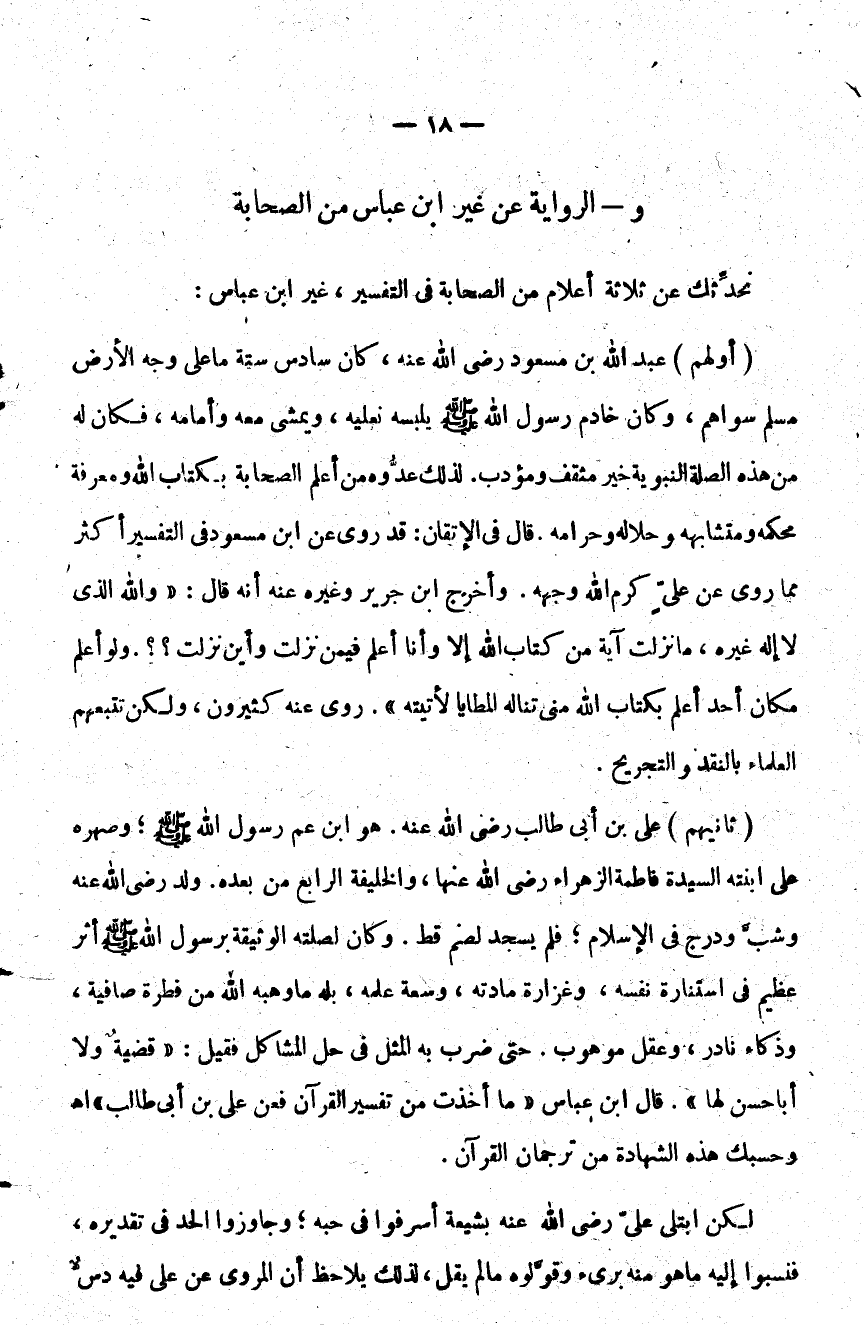 — ١٨ —
و — الرواية عن غير ابن عباس من الصحابة
نحدِّثك عن ثلاثة أعلام من الصحابة فى التفسير ، غير ابن عباس :
( أولهم ) عبد الله بن مسعود رضى الله عنه ، كان سادس ستة ماعلى وجه الأرض
مسلم سواهم ، وكان خادم رسول الله ﷺ يلبسه نعليه ، ويمشى معه وأمامه ، فكان له
من هذه الصلة النبوية خير مثقف ومؤدب. لذلك عدُّوه من أعلم الصحابة بكتاب الله ومعرفة
محكمه ومتشابهه وحلاله وحرامه . قال فى الإتقان: قد روى عن ابن مسعود فى التفسير أكثر
مما روى عن علىٍّ كرم الله وجهه . وأخرج ابن جرير وغيره عنه أنه قال : « والله الذى
لا إله غيره ، مانزلت آية من كتاب الله إلا وأنا أعلم فيمن نزلت وأين نزلت ؟ ؟ . ولو أعلم
مكان أحد أعلم بكتاب الله منى تناله المطايا لأتيته » . روى عنه كثيرون ، ولكن تتبعهم
العلماء بالنقد والتجريح .
( ثانيهم ) على بن أبى طالب رضى الله عنه . هو ابن عم رسول الله ﷺ ؛ وصهره
على ابنته السيدة فاطمة الزهراء رضى الله عنها ، والخليفة الرابع من بعده. ولد رضى الله عنه
وشبَّ ودرج فى الإسلام ؛ فلم يسجد لصنم قط . وكان لصلته الوثيقة برسول الله ﷺ أثر
عظيم فى استنارة نفسه ، وغزارة مادته ، وسعة علمه ، بله ماوهبه الله من فطرة صافية ،
وذكاء نادر ، وعقل موهوب . حتى ضرب به المثل فى حل المشاكل فقيل : « قضيةٌ ولا
أباحسن لها » . قال ابن عباس « ما أخذت من تفسير القرآن فعن على بن أبى طالب» اه
وحسبك هذه الشهادة من ترجمان القرآن .
لكن ابتلى علىّ رضى الله عنه بشيعة أسرفوا فى حبه ؛ وجاوزوا الحد فى تقديره ،
فنسبوا إليه ماهو منه برىء وقوَّلوه مالم يقل ، لذلك يلاحظ أن المروى عن على فيه دسٌ